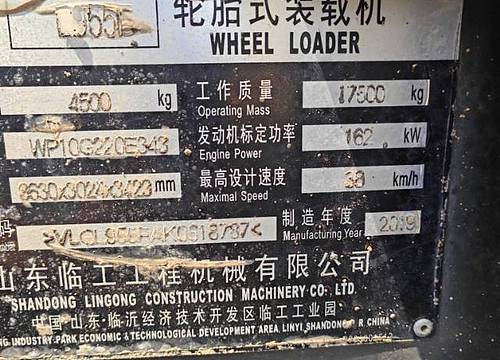 轮胎式装载机
WHEEL LOADER
4500 kg 工作质量 Operating Mass 17500 kg
WP10G220E343 发动机标定功率 Engine Power 162 kW
mm 最高设计速度 Maximal Speed 38 km/h
制造年度 Manufacturing Year 2019
山东临工工程机械有限公司
SHANDONG LINGONG CONSTRUCTION MACHINERY CO. LTD.
中国·山东·临沂经济技术开发区临工工业园
INDUSTRY PARK ECONOMIC & TECHNOLOGICAL DEVELOPMENT AREA LINYI, SHANDONG P.R. CHINA